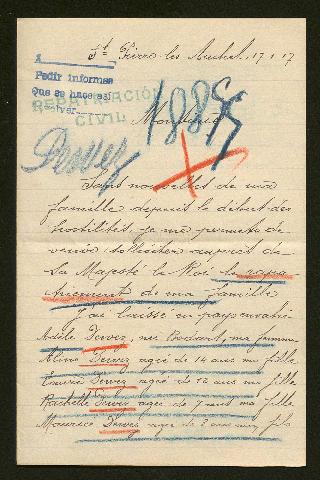 St Pierre les 17.1.17
A
Pedir informes
Que se hace así
Resolver
REPATRIACIÓN
CIVIL
Dewez
Monsieur
Sans nouvelles de ma
famille depuis le début des
hostilités, je me permets de
venir solliciter auprès de
Sa Majesté le Roi le rapa
triement de ma famille
J'ai laissé en pays envahi
Adèle Dewez, née Rodant, ma femme
Dewez agée de 14 ans ma fille
Dewez agé de 12 ans ma fille
Rachelle Dewez agée de 7 ans ma fille
Maurice Dewez agé de 2 ans mon fils